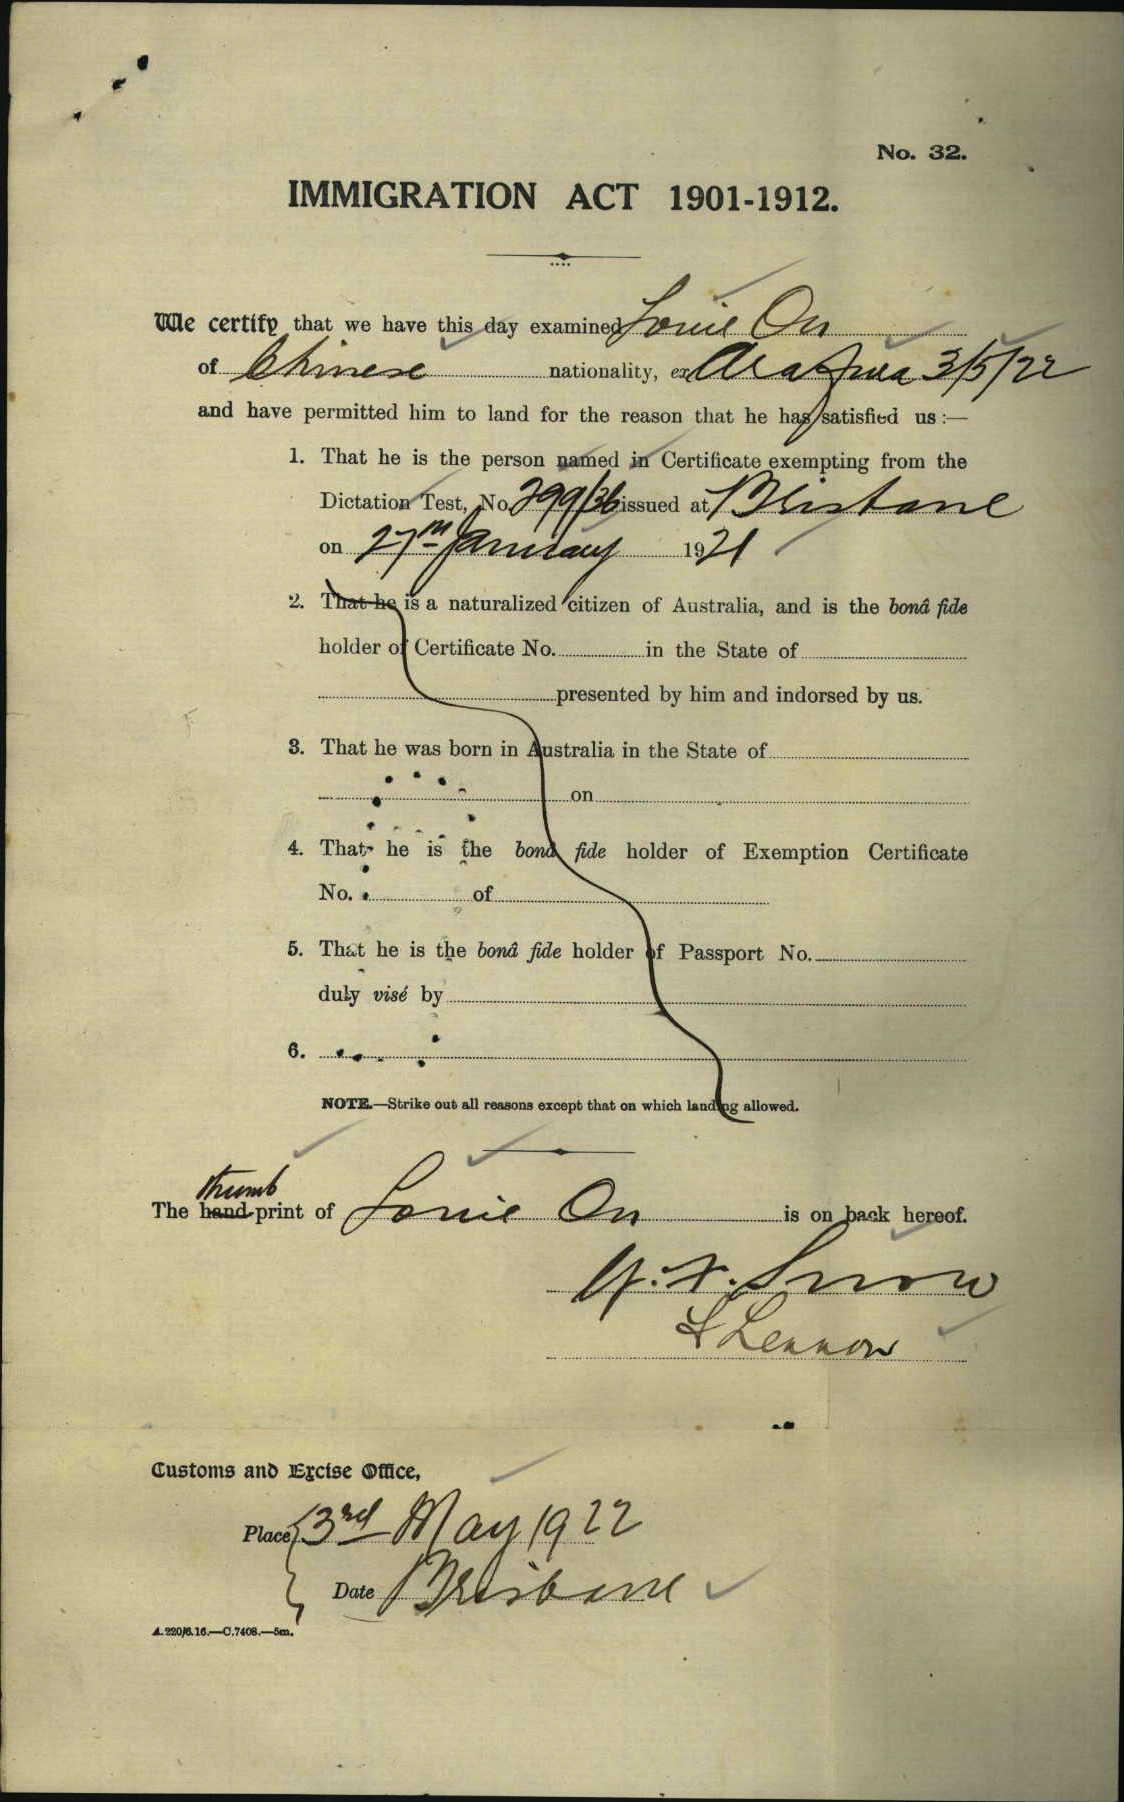 No. 32.
IMMIGRATION ACT 1901-1912.
We certify that we have this day examined Louie On
of Chinese nationality, ex Arafura 3/5/22
and have permitted him to land for the reason that he has satisfied us :—
1. That he is the person named in Certificate exempting from the
Dictation Test, No. 299/36 issued at Brisbane
on 27th January 1921
2. That he is a naturalized citizen of Australia, and is the bonâ fide
holder of Certificate No. in the State of
presented by him and indorsed by us.
3. That he was born in Australia in the State of
on
4. That he is the bonâ fide holder of Exemption Certificate
No. of
5. That he is the bonâ fide holder of Passport No.
duly visé by
6.
NOTE.—Strike out all reasons except that on which landing allowed.
thumb
The hand-print of Louie On is on back hereof.
Snow
Lennon
Customs and Excise Office,
Place 3rd May 1922
Date Brisbane
A.220/6.16.—C.7408.—5m.